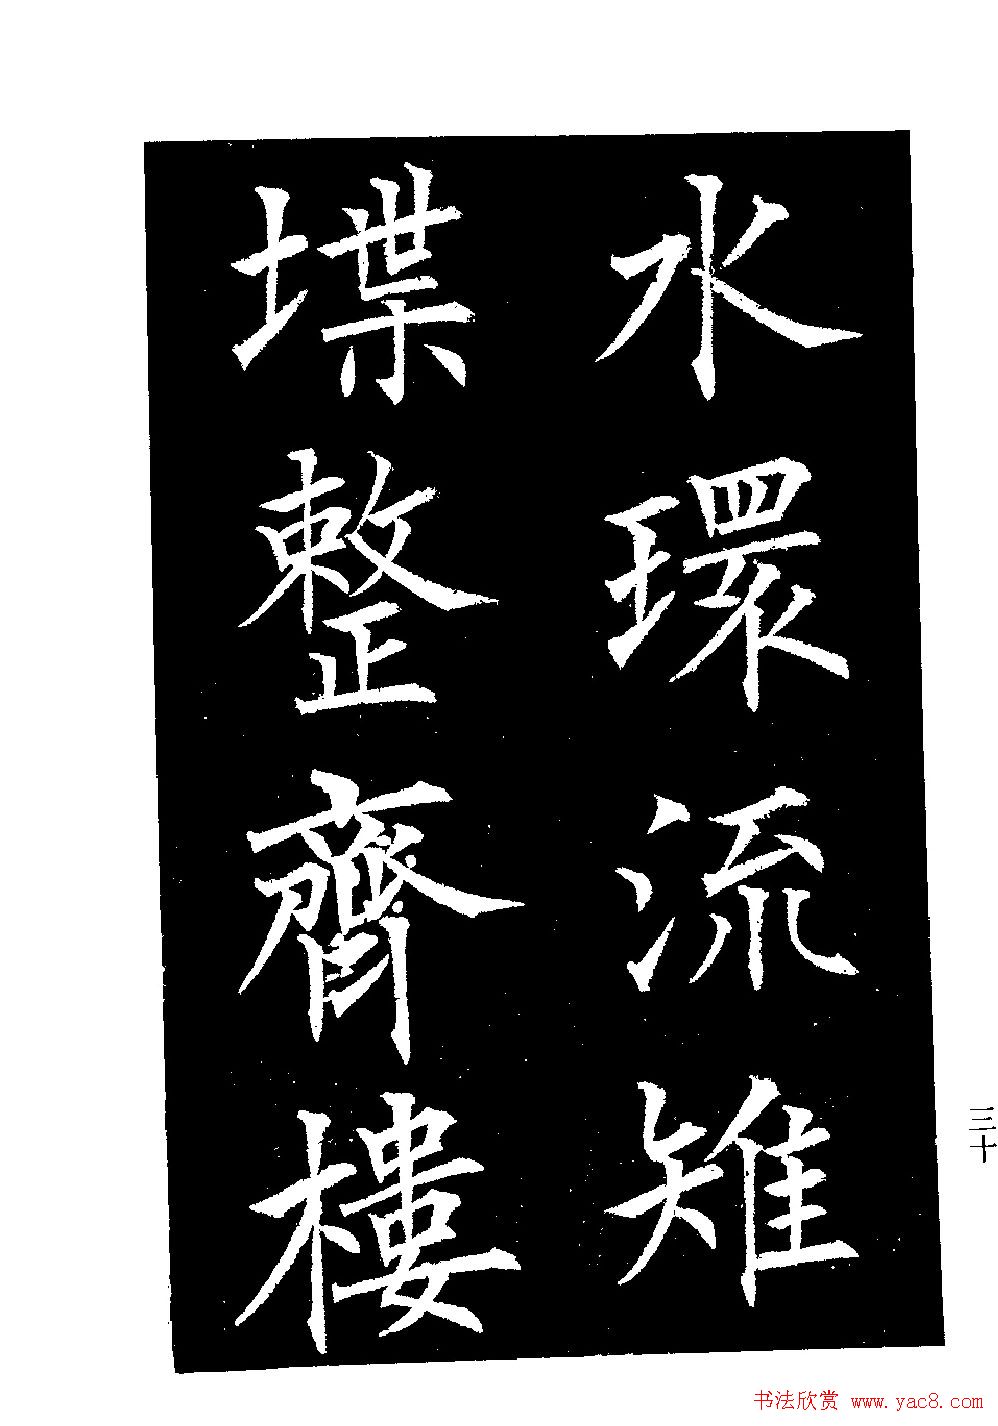 水環流雉
堞整齊樓
三十
书法欣赏 www.yac8.com